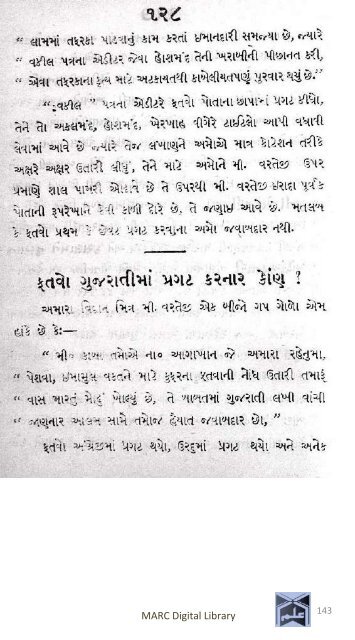 ૧૨૮
“ લામમાં તફરકા પાડવાનું કામ કરતાં ઇમાનદારી સમજ્યા છે, જ્યારે
“ વકીલ પત્રના એડીટર જેવા હોશમંદે તેની ખરાબીની પીછાનત કરી,
“ એવા તફરકાના કૃત્ય માટે અટકાયતથી કાબેલીયતપણું પુરવાર થયું છે.”
“ વકીલ ” પત્રના એડીટરે ફતવો પોતાના છાપામાં પ્રગટ કીધો,
તેને તો અકલમંદ, હોશમંદ, ખેરખાહ વીગેરે ટાઈટલો આપી વધાવી
લેવામાં આવે છે જ્યારે તેજ લખાણને અમોએ માત્ર કોટેશન તરીકે
અક્ષરે અક્ષર ઉતારી લીધું, તેને માટે અમોને મી. વરતેજી ઉપર
પ્રમાણે શાલ પામરી ઓઢાવે છે તે ઉપરથી મી. વરતેજી ઇરાદા પૂર્વક
પોતાની રૂપરેખાને કેવી કાળી દોરે છે, તે જણાઇ આવે છે. મતલબ
કે ફતવો પ્રથમ કે છેવટ પ્રગટ કરવાના અમો જવાબદાર નથી.
ફતવો ગુજરાતીમાં પ્રગટ કરનાર કોંણ ?
અમારા વિદ્વાન મિત્ર મી. વરતેજી એક બીજો ગપ ગોળો એમ
હાંકે છે કેઃ—
“ મી૦ કાબા તમોએ ના૦ આગાખાન જે અમારા રહેનુમા,
“ પેશવા, ઇમામુલ વકતને માટે કુફરના ફતવાની નોંધ ઉતારી તમારૂં
“ વાસ મારતું મોઢું ખોલ્યું છે, તે બાબતમાં ગુજરાતી લખી વાંચી
“ જાણનાર આલમ સામે તમોજ હૈયાત જવાબદાર છો, ”
ફતવો અંગ્રેજીમાં પ્રગટ થયો, ઉરદુમાં પ્રગટ થયો અને અનેક
MARC Digital Library
143